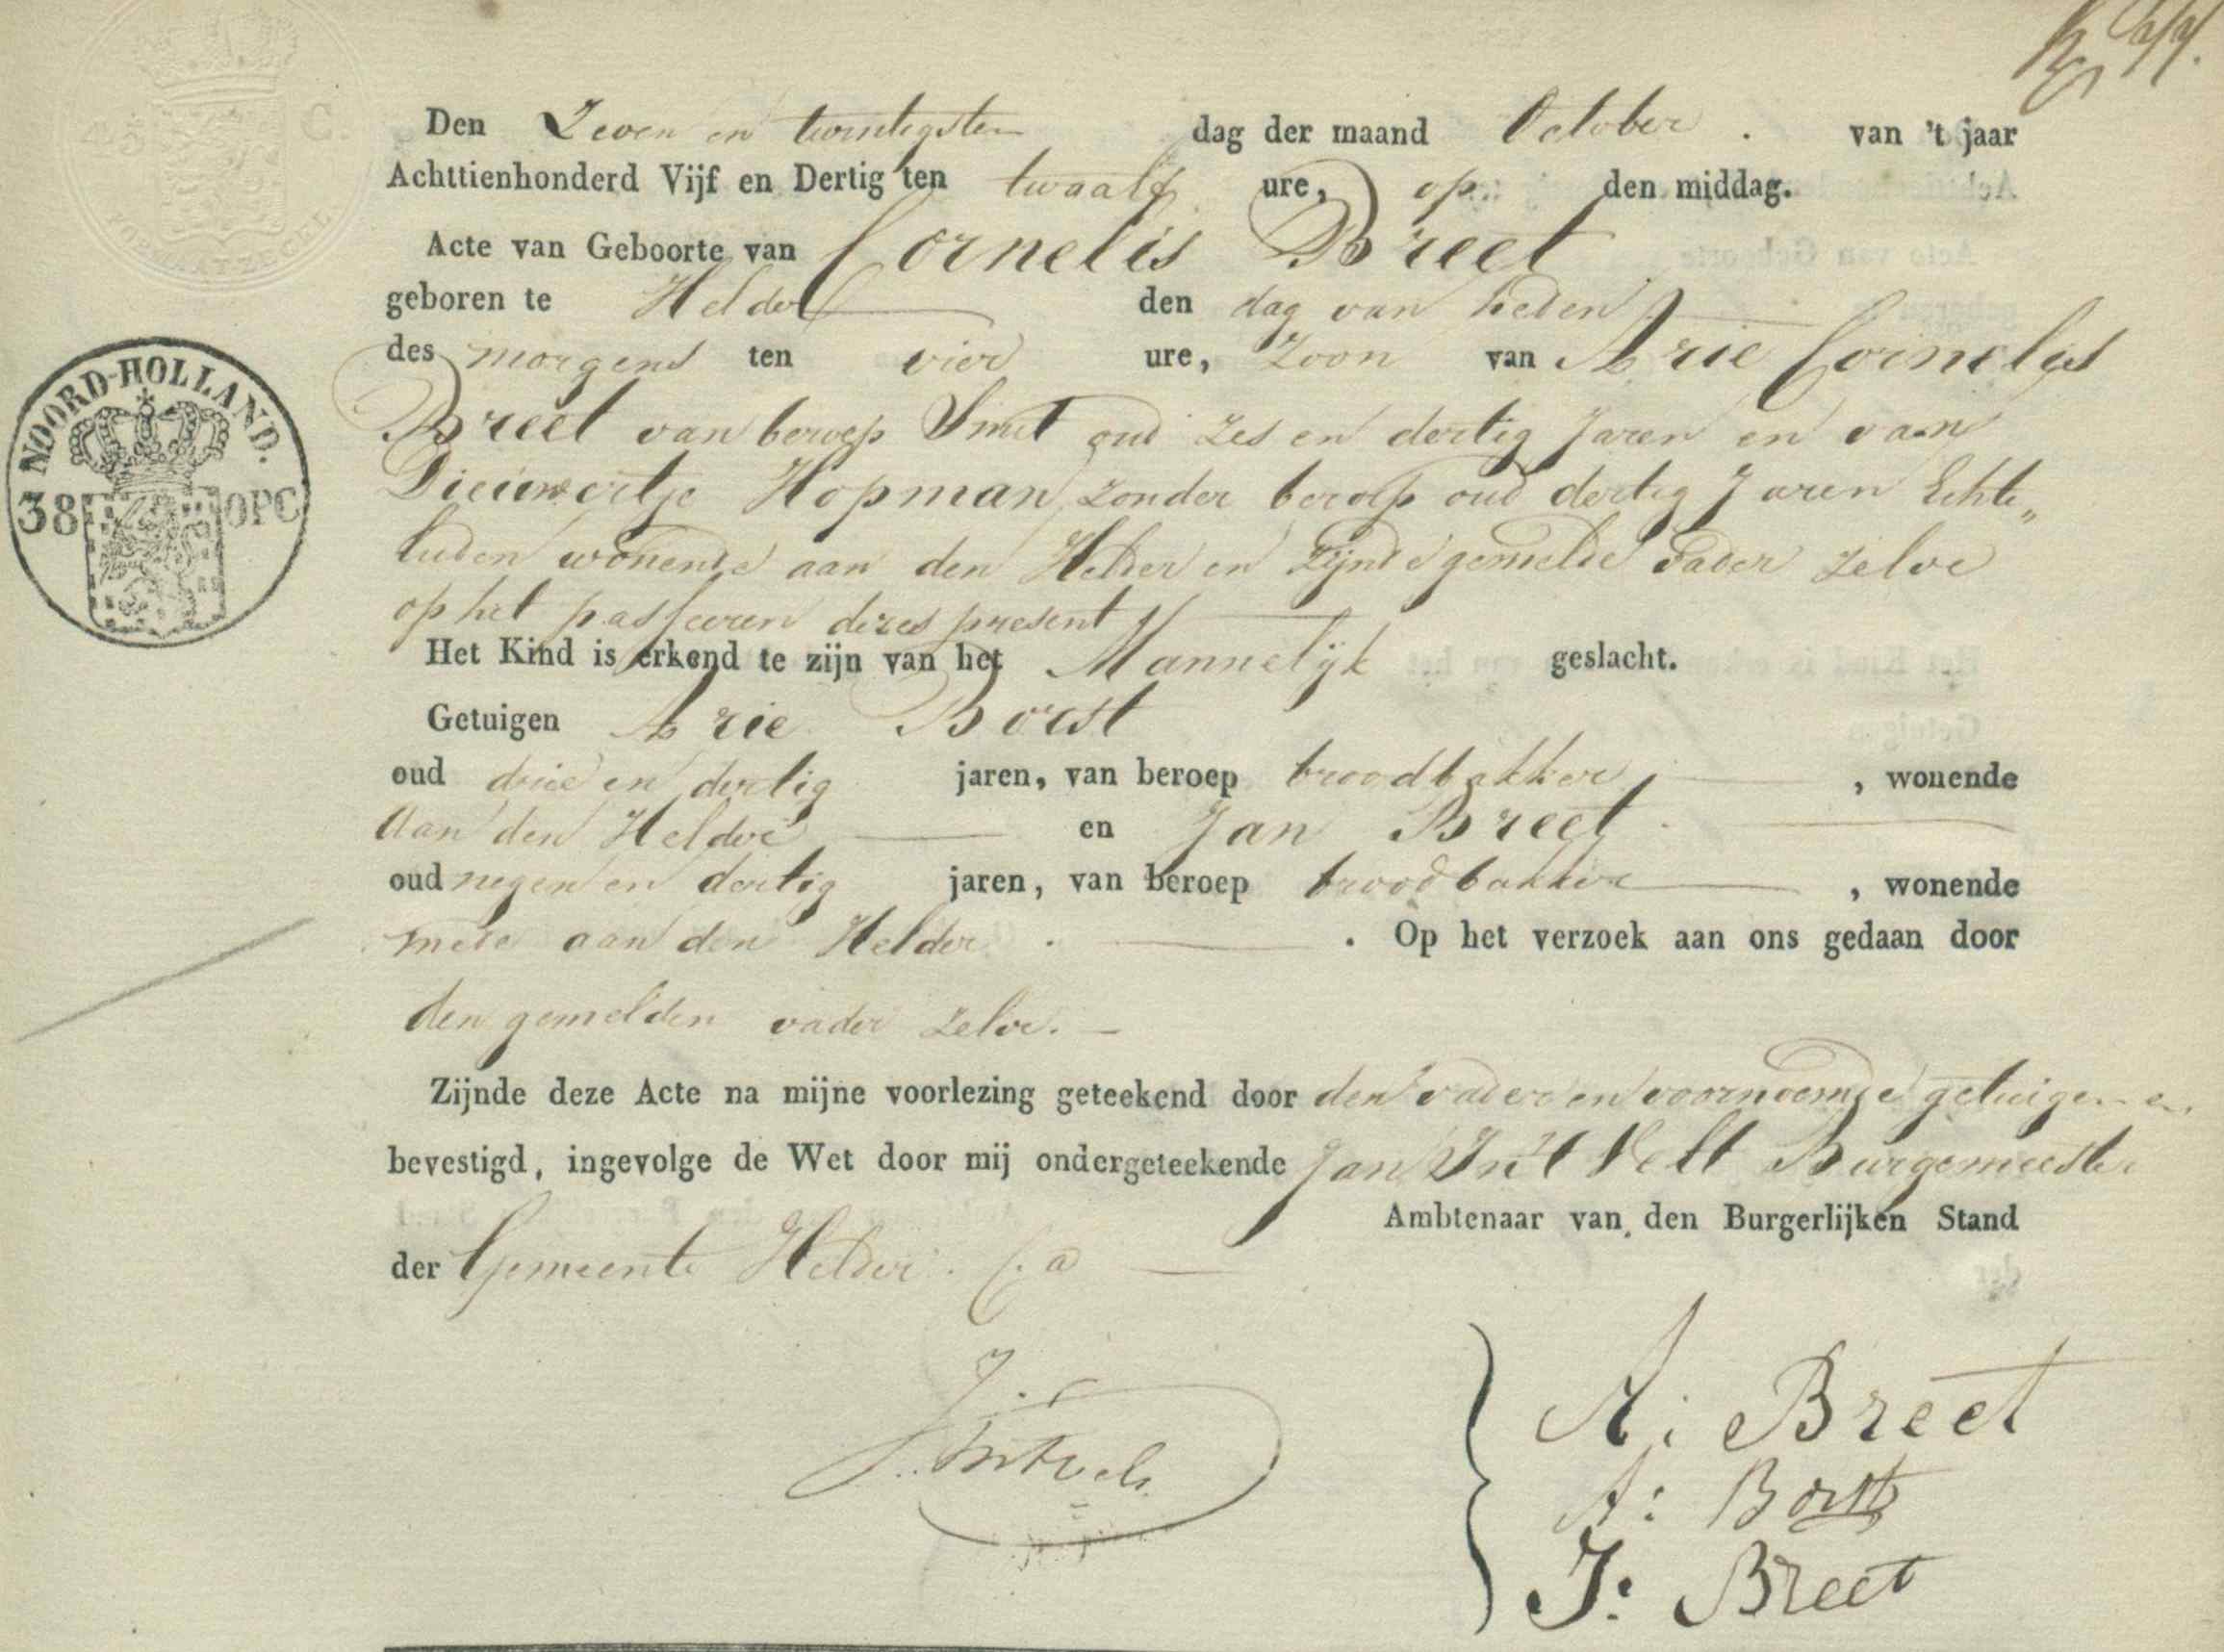 45 C.
Den Zeven en twintigsten dag der maand October . van 't jaar
Achttienhonderd Vijf en Dertig ten twaalf ure, op den middag.
Acte van Geboorte van Cornelis Breet
geboren te Helder den dag van heden
des morgens ten vier ure, Zoon van Arie Cornelis
Breet van beroep Smit oud zes en dertig Jaren en van
Dieuwertje Hopman, zonder beroep oud dertig Jaren Echte„
luden wonende aan den Helder en zijnde gemelde vader zelve
op het passeeren dezes present
Het Kind is erkend te zijn van het Mannelijk geslacht.
Getuigen Arie Borst
oud drie en dertig jaren, van beroep broodbakker , wonende
Aan den Helder en Jan Breet
oud negen en dertig jaren, van beroep broodbakker , wonende
mede aan den Helder . Op het verzoek aan ons gedaan door
den gemelden vader zelve.
Zijnde deze Acte na mijne voorlezing geteekend door den vader en voornoemde getuigen en
bevestigd, ingevolge de Wet door mij ondergeteekende Jan In 't Velt Burgemeester
Ambtenaar van den Burgerlijken Stand
der Gemeente Helder. C.a
A: Breet
A: Borst
J: Breet
NOORD-HOLLAND.
38 OPC